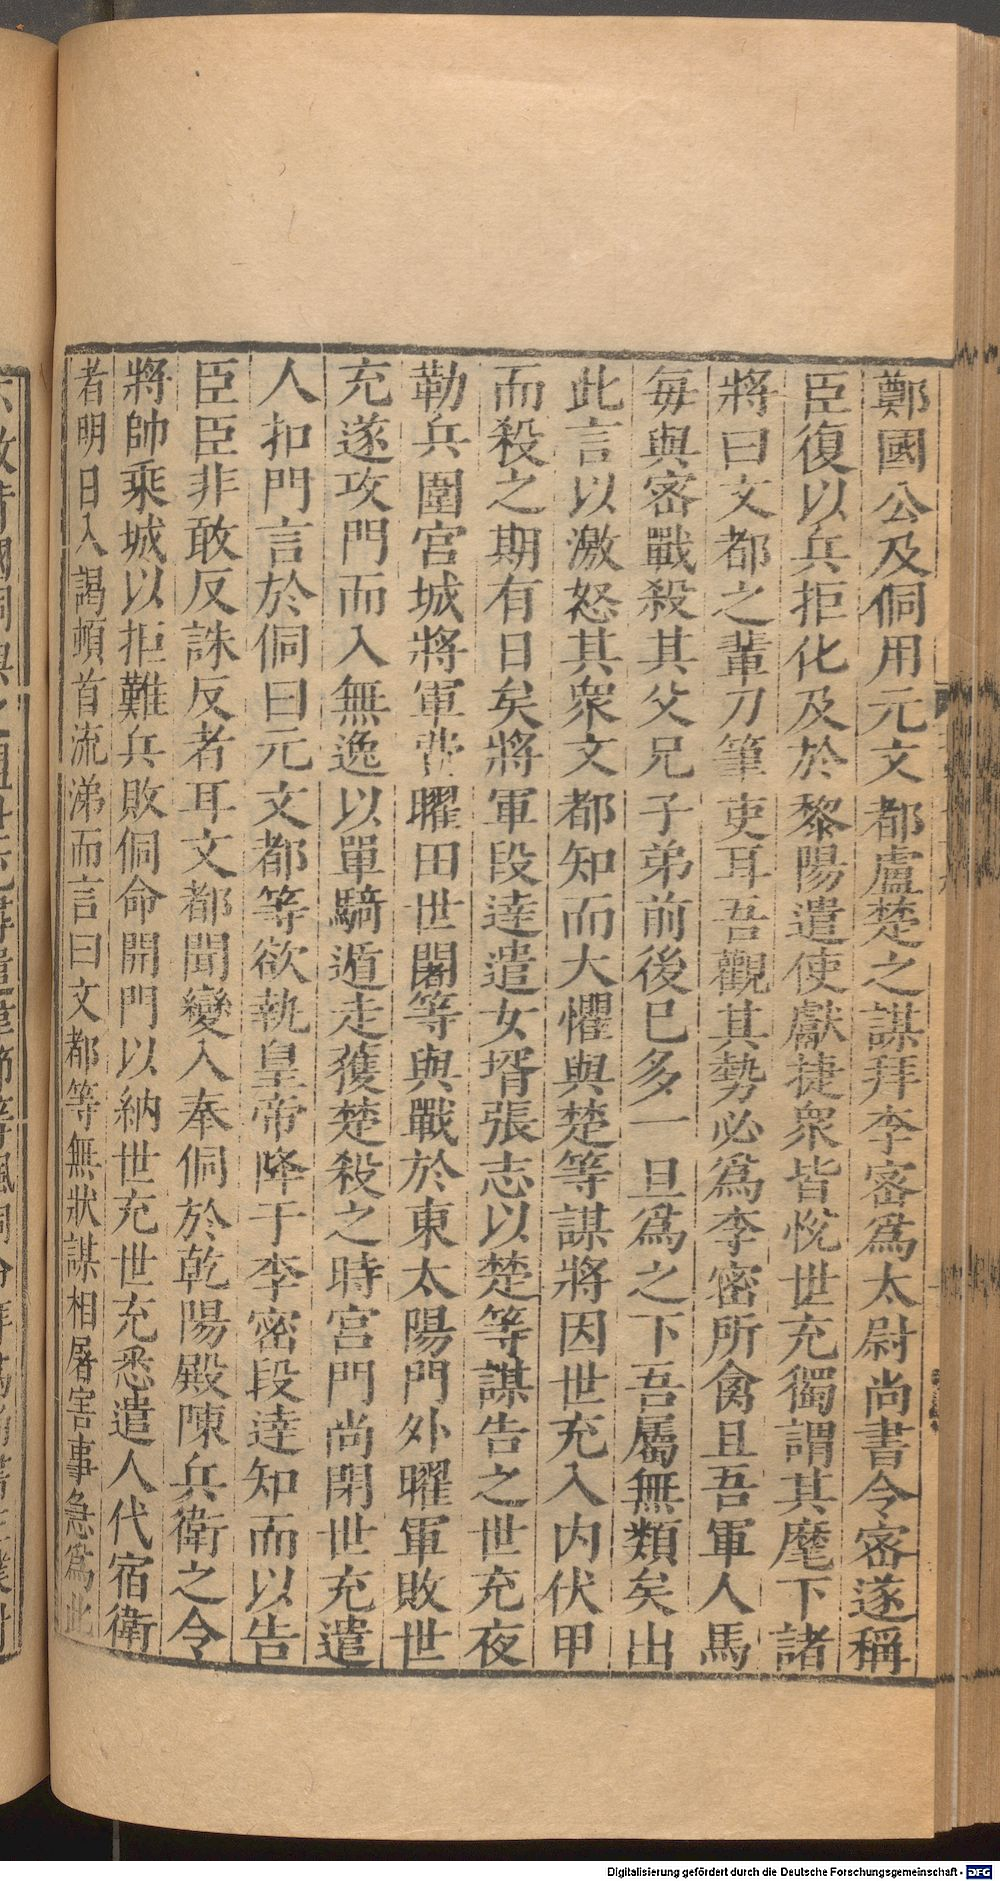 鄭國公及侗用元文都盧楚之謀拜李密爲太尉尚書令密遂稱
臣復以兵拒化及於黎陽遣使獻捷眾皆悅世充獨謂其麾下諸
將曰文都之輩刀筆吏耳吾觀其勢必爲李密所禽且吾軍人馬
每與密戰殺其父兄子弟前後已多一旦爲之下吾屬無類矣出
此言以激怒其衆文都知而大懼與楚等謀將因世充入内伏甲
而殺之期有日矣將軍段達遣女壻張志以楚等謀告之世充夜
勒兵圍宮城將軍費曜田世闍等與戰於東太陽門外曜軍敗世
充遂攻門而入無逸以單騎遁走獲楚殺之時宮門尚閉世充遣
人扣門言於侗曰元文都等欲執皇帝降于李密段達知而以告
臣臣非敢反誅反者耳文都聞變入奉侗於乾陽殿陳兵衛之令
將帥乘城以拒難兵敗侗命開門以納世充世充悉遣人代宿衛
者明日入謁頓首流涕而言曰文都等無狀謀相屠害事急爲此
Digitalisierung gefördert durch die Deutsche Forschungsgemeinschaft - DFG